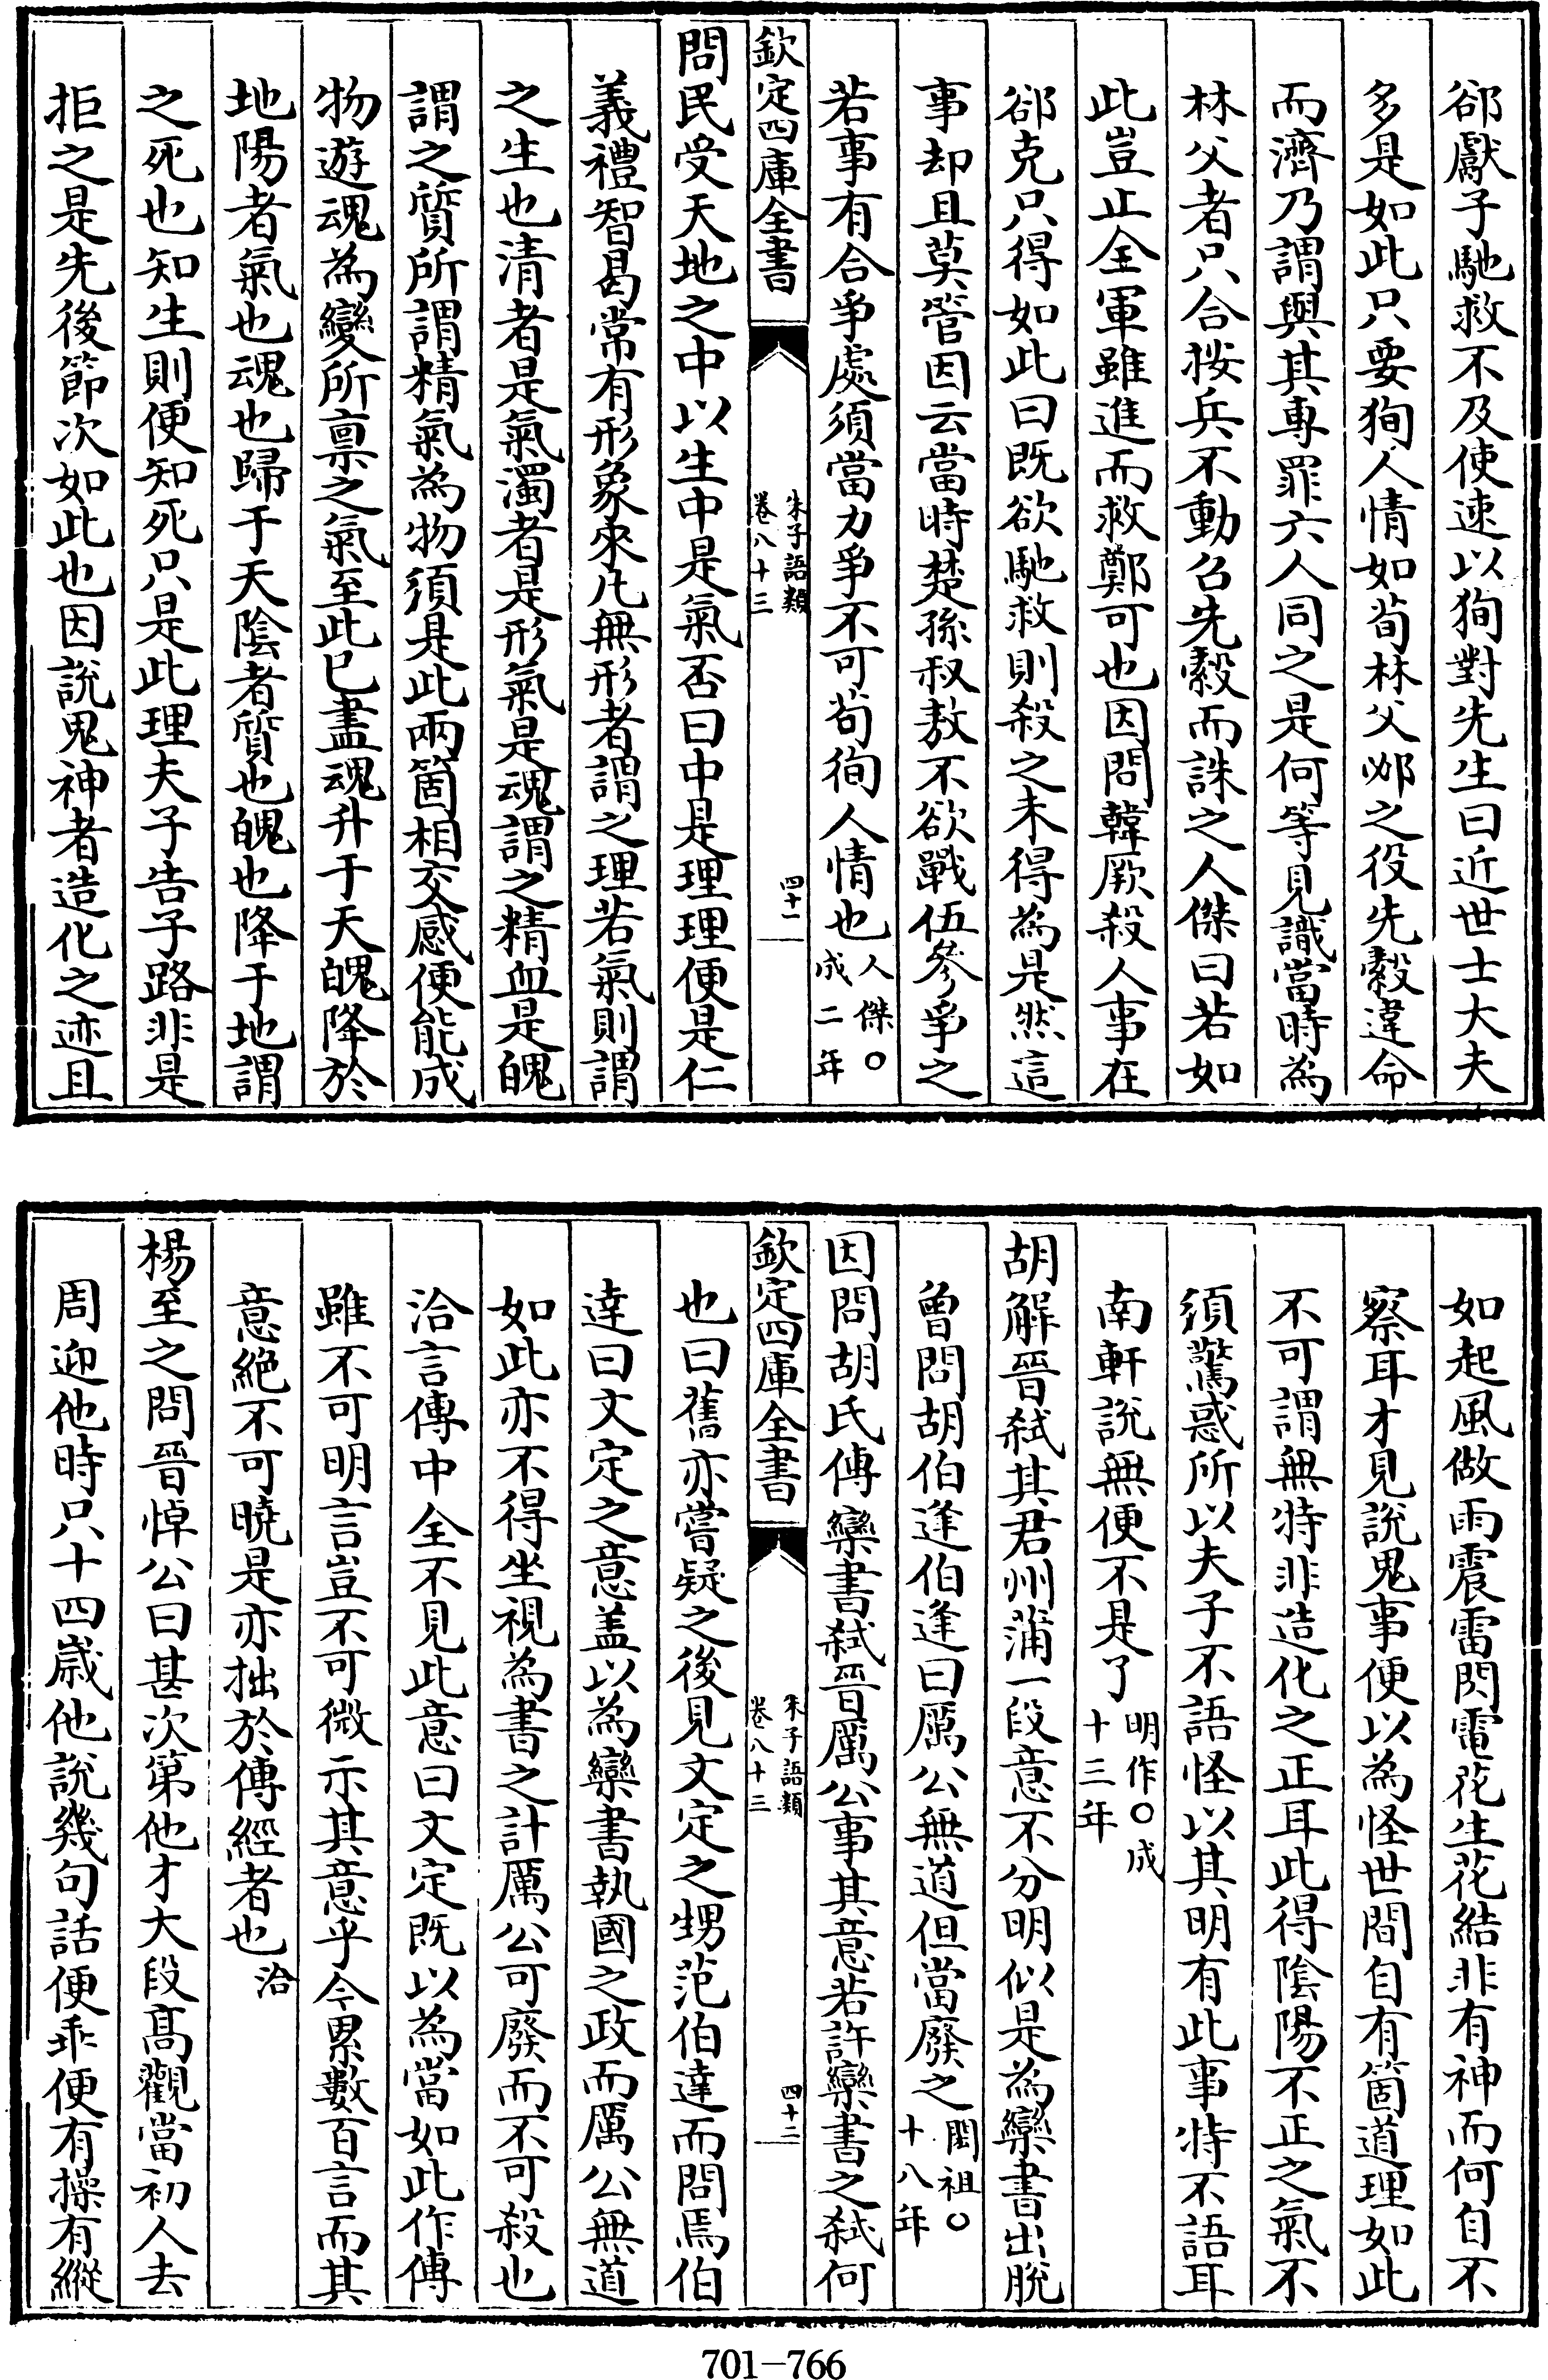 郤獻子馳救不及使速以狥對先生曰近世士大夫
多是如此只要狥人情如荀林父邲之役先縠違命
而濟乃謂與其專罪六人同之是何等見識當時為
林父者只合按兵不動召先縠而誅之人傑曰若如
此豈止全軍雖進而救鄭可也因問韓厥殺人事在
郤克只得如此曰既欲馳救則殺之未得為是然這
事却且莫管因云當時楚孫叔敖不欲戰伍參爭之
若事有合爭處須當力爭不可茍徇人情也人傑○
成二年
欽定四庫全書
朱子語類
卷八十三
四十一
問民受天地之中以生中是氣否曰中是理理便是仁
義禮智曷常有形象來凡無形者謂之理若氣則謂
之生也清者是氣濁者是形氣是魂謂之精血是魄
謂之質所謂精氣為物須是此兩箇相交感便能成
物遊魂為變所禀之氣至此已盡魂升于天魄降於
地陽者氣也魂也歸于天陰者質也魄也降于地謂
之死也知生則便知死只是此理夫子告子路非是
拒之是先後節次如此也因說鬼神者造化之迹且
如起風做雨震雷閃電花生花結非有神而何自不
察耳才見說鬼事便以為怪世間自有箇道理如此
不可謂無特非造化之正耳此得隂陽不正之氣不
須驚惑所以夫子不語怪以其明有此事特不語耳
南軒說無便不是了明作○成
十三年
胡解晉弑其君州蒲一段意不分明似是為欒書出脫
曾問胡伯逢伯逢曰厲公無道但當廢之閎祖○
十八年
因問胡氏傳欒書弑晉厲公事其意若許欒書之弑何
欽定四庫全書
朱子語類
卷八十三
四十二
也曰舊亦嘗疑之後見文定之甥范伯達而問焉伯
達曰文定之意葢以為欒書執國之政而厲公無道
如此亦不得坐視為書之計厲公可廢而不可殺也
洽言傳中全不見此意曰文定既以為當如此作傳
雖不可明言豈不可微示其意乎今累數百言而其
意絶不可曉是亦拙於傳經者也洽
楊至之問晉悼公曰甚次第他才大段髙觀當初人去
周迎他時只十四歲他說幾句話便乖便有操有縱
701-766